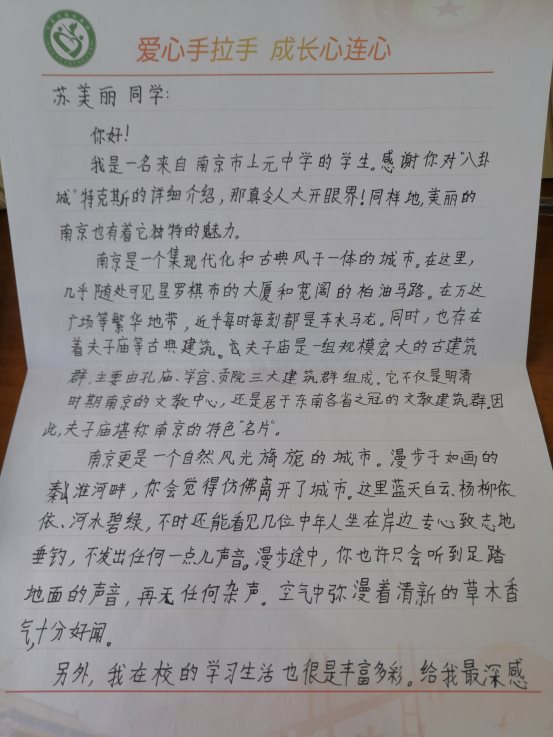 爱心手拉手 成长心连心
苏美丽同学:
你好!
我是一名来自南京市上元中学的学生。感谢你对“八卦
城”特克斯的详细介绍，那真令人大开眼界!同样地,美丽的
南京也有着它独特的魅力。
南京是一个集现代化和古典风于一体的城市。在这里，
几乎随处可见星罗棋布的大厦和宽阔的柏油马路。在万达
广场等繁华地带，近乎每时每刻都是车水马龙。同时，也存在
着夫子庙等古典建筑。夫子庙是一组规模宏大的古建筑
群,主要由孔庙、学宫、贡院三大建筑群组成。它不仅是明清
时期南京的文教中心，还是居于东南各省之冠的文教建筑群。因
此,夫子庙堪称南京的特色“名片”。
南京更是一个自然风光旖旎的城市。漫步于如画的
秦淮河畔，你会觉得仿佛离开了城市。这里蓝天白云、杨柳依
依、河水碧绿，不时还能看见几位中年人坐在岸边专心致志地
垂钓，不发出任何一点儿声音。漫步途中，你也许只会听到足踏
地面的声音，再无任何杂声。空气中弥漫着清新的草木香
气,十分好闻。
另外，我在校的学习生活也很是丰富多彩。给我最深感